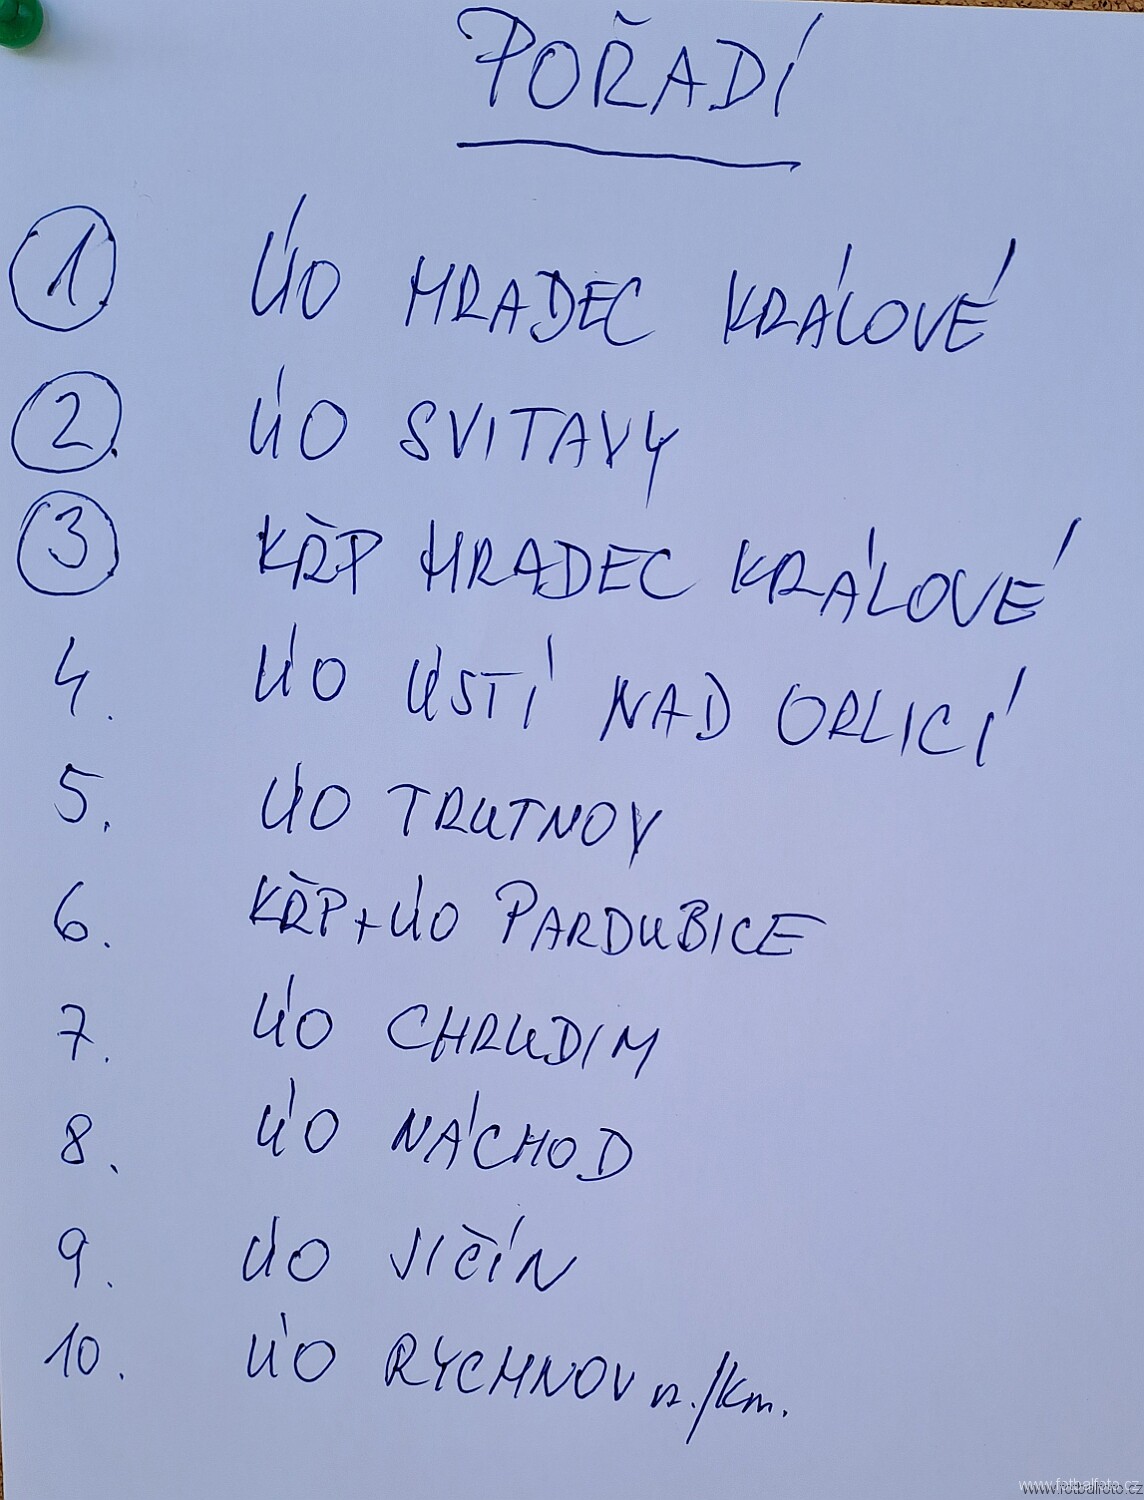 POŘADÍ
1. ÚO HRADEC KRÁLOVÉ
2. ÚO SVITAVY
3. KŘP HRADEC KRÁLOVÉ
4. ÚO ÚSTÍ NAD ORLICÍ
5. ÚO TRUTNOV
6. KŘP+ÚO PARDUBICE
7. ÚO CHRUDIM
8. ÚO NÁCHOD
9. ÚO JIČÍN
10. ÚO RYCHNOV n./Km.
www.fotbalfoto.cz
www.fotbalfoto.cz